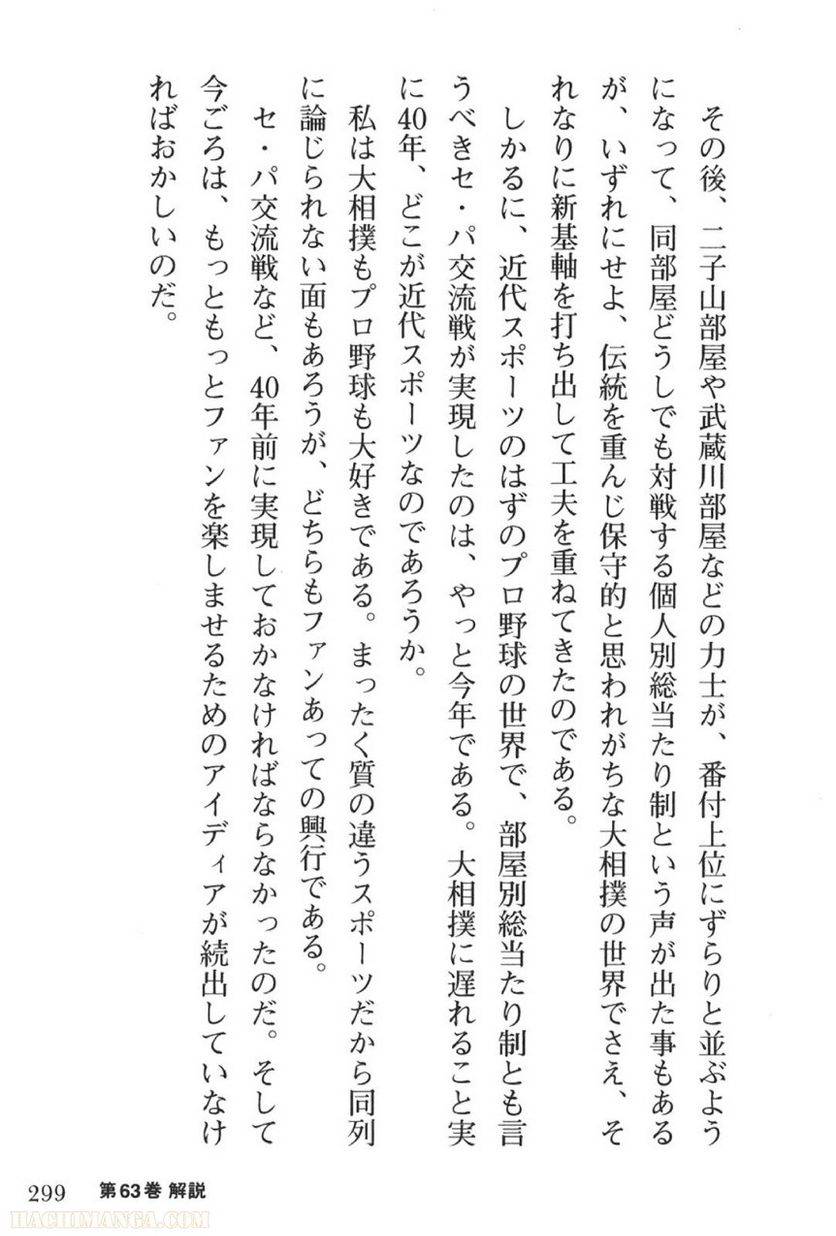 その後、二子山部屋や武蔵川部屋などの力士が、番付上位にずらりと並ぶよう
になって、同部屋どうしでも対戦する個人別総当たり制という声が出た事もある
が、いずれにせよ、伝統を重んじ保守的と思われがちな大相撲の世界でさえ、そ
れなりに新基軸を打ち出して工夫を重ねてきたのである。
しかるに、近代スポーツのはずのプロ野球の世界で、部屋別総当たり制とも言
うべきセ・パ交流戦が実現したのは、やっと今年である。大相撲に遅れること実
に40年、どこが近代スポーツなのであろうか。
私は大相撲もプロ野球も大好きである。まったく質の違うスポーツだから同列
に論じられない面もあろうが、どちらもファンあっての興行である。
セ・パ交流戦など、40年前に実現しておかなければならなかったのだ。そして
今ごろは、もっともっとファンを楽しませるためのアイディアが続出していなけ
ればおかしいのだ。
299 第63巻 解説
HACHIMANGA.COM